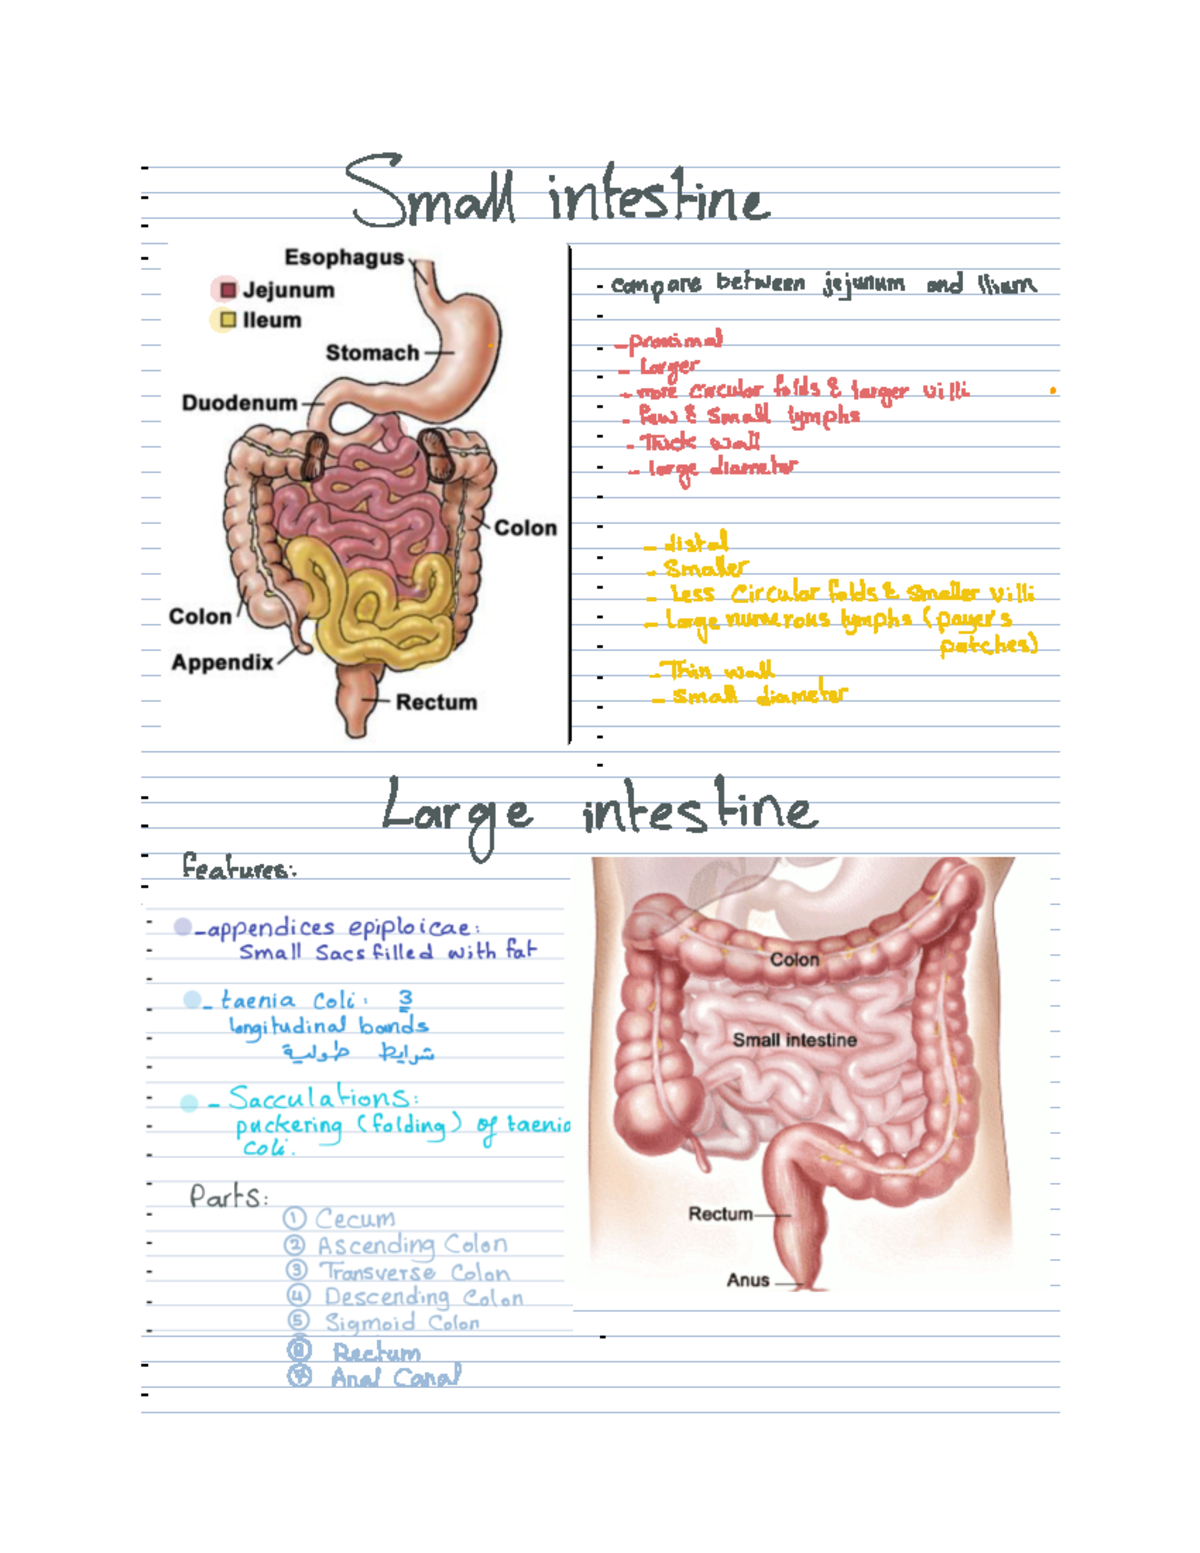 Small intestine
Esophagus
Jejunum
Ileum
Stomach
Duodenum
Colon
Colon
Appendix
Rectum
- compare between jejunum and Ilium
- proximal
- Larger
- more circular folds & larger villi
- few & small lymphs
- Thick wall
- large diameter
- distal
- Smaller
- Less Circular folds & smaller villi
- Large numerous lymphs (payer's
patches)
- Thin wall
- Small diameter
Large intestine
features:
- appendices epiploicae:
Small Sacs filled with fat
- taenia Coli: 3
longitudinal bands
شرايط طولية
- Sacculations:
puckering (folding) of taenia
Coli.
Parts:
① Cecum
② Ascending Colon
③ Transverse Colon
④ Descending Colon
⑤ Sigmoid Colon
⑥ Rectum
⑦ Anal Canal
Colon
Small intestine
Rectum
Anus